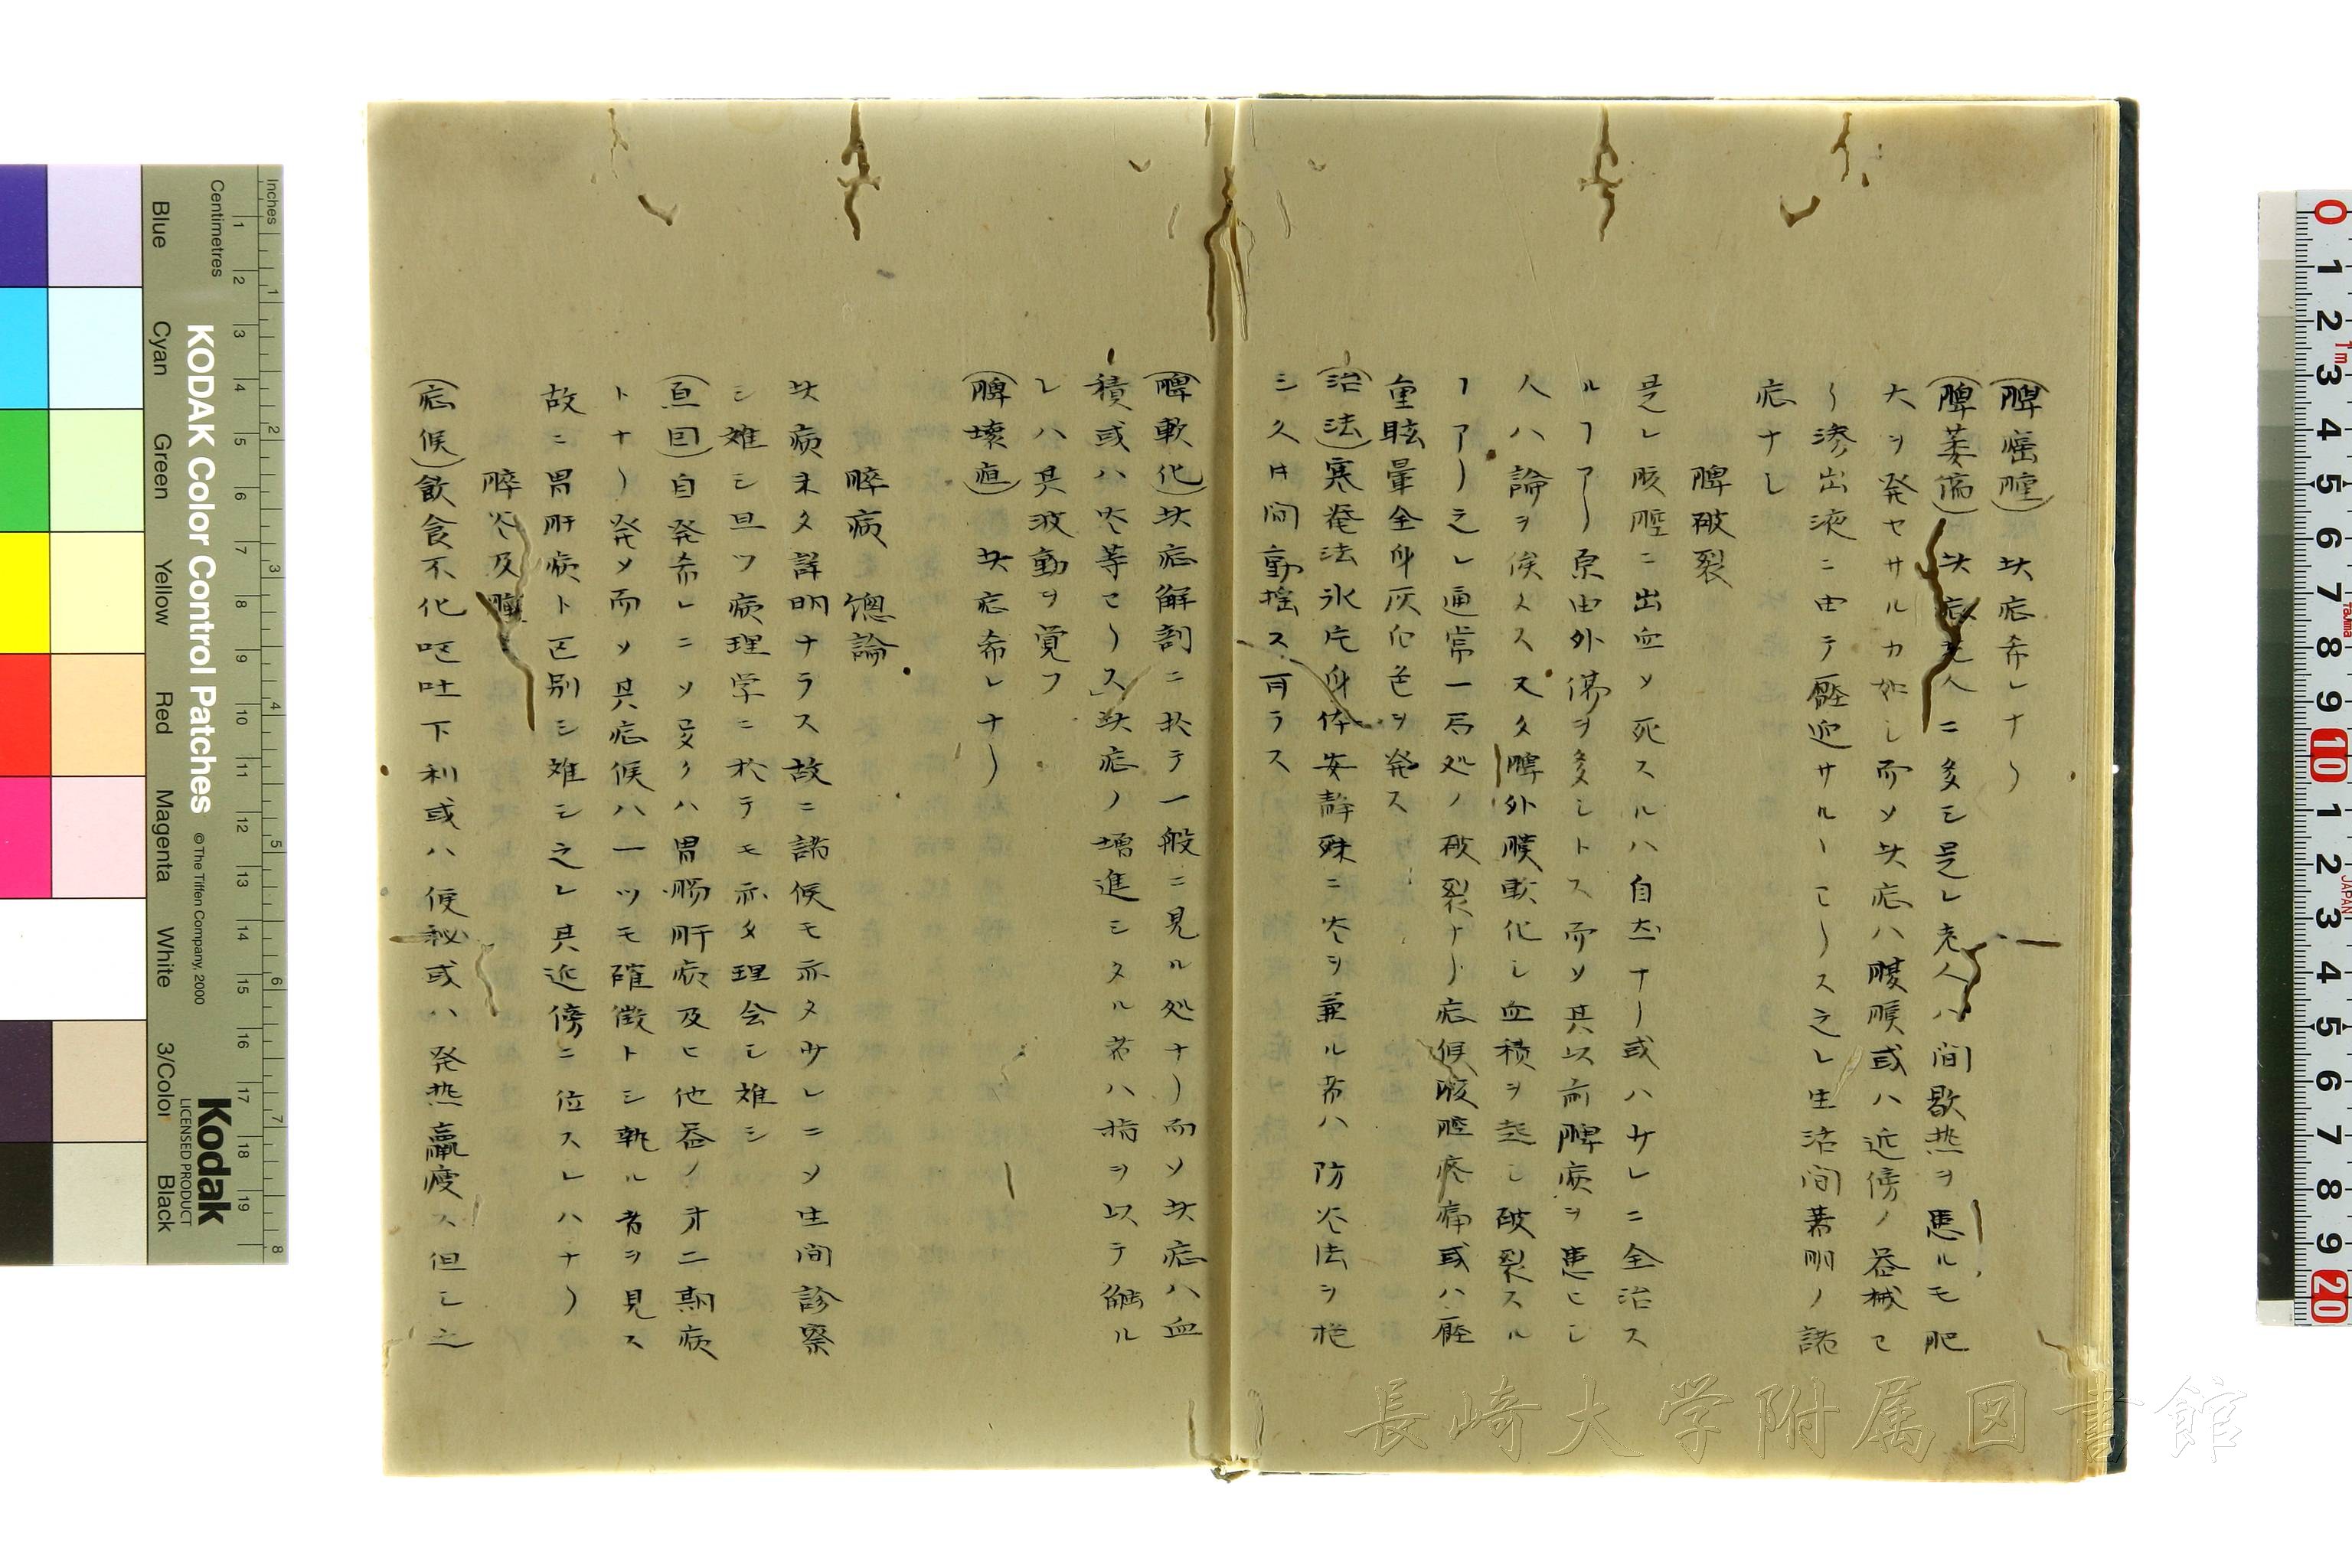 (脾癌腫) 此症希レナリ
(脾萎傷) 此症老人ニ多シ是レ老人ハ間歇热ヲ患ルモ肥
大ヲ発セサルカ如シ而ソ此症ハ腹膜或ハ近傍ノ器械ヒ
リ滲出液ニ由テ壓迫サル丨ヒリス之レ生活間著明ノ諸
症ナシ
脾破裂
是レ腹腔ニ出血ソ死スルハ自然ナリ或ハサレニ全治ス
ルフアリ原由外傷ヲ多シトス而ソ其以前脾病ヲ患ヒシ
人ハ論ヲ俟スス又タ脾外膜軟化シ血積ヲ起シ破裂スル
フアリ之レ通常一局処ノ破裂ナリ症候腹腔疼痛或ハ壓
重眩暈全身灰白色ヲ発ス
(治法) 寒罨法氷片身体安静殊ニ炎ヲ兼ル者ハ防炎法ヲ施
シ久シ間動揺ス可ラス
(脾軟化) 此症解剖ニ於テ一般ニ見ル処ナリ而ソ此症ハ血
積或ハ炎等ヒリス此症ノ増進シタル者ハ指ヲ以テ觸ル
レハ其波動ヲ覚フ
(脾壊疽) 此症希レナリ
膵病総論
此病未タ詳明ナラス故ニ諸候モ亦タサレニソ生間診察
シ難シ且ツ病理学ニ於テモ亦タ理会シ難シ
(原因) 自発希レニソ多クハ胃腸肝病及ヒ他器ノ才二期病
トナリ発ソ而ソ其症候ハ一ツモ確徴トシ執ル者ヲ見ス
故ニ胃肝病ト区別シ難シ之レ其近傍ニ位スレハナリ
膵炎及腫
(症候) 飲食不化嘔吐下利或ハ便秘或ハ発热羸痩ス但シ之
KODAK Color Control Patches
© The Tiffen Company, 2000
Kodak
LICENSED PRODUCT
Inches
Centimetres
Blue
Cyan
Green
Yellow
Red
Magenta
White
3/Color
Black
長崎大学附属図書館